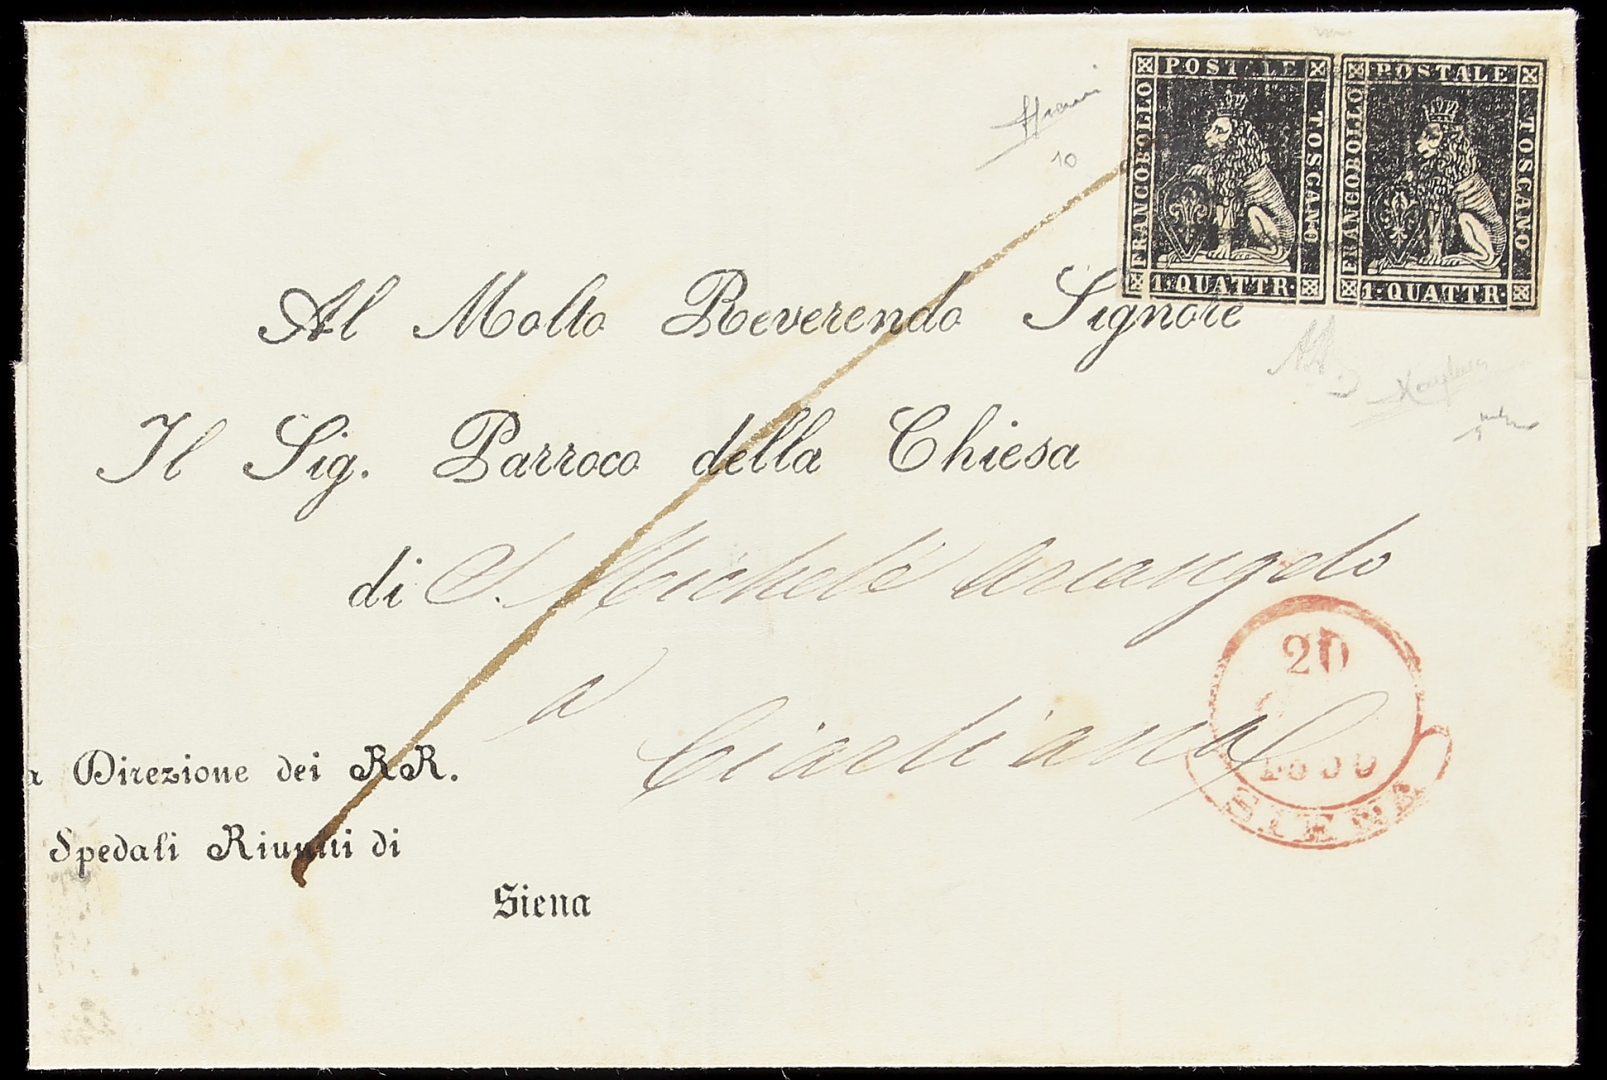 POSTALE POSTALE
FRANCOBOLLO TOSCANO FRANCOBOLLO TOSCANO
1·QUATTR· 1·QUATTR·
10
Al Molto Reverendo Signore
Il Sig. Parroco della Chiesa
di S. Michele Arcangelo
a
20
SIENA
Direzione dei RR.
Spedali Riuniti di
Siena